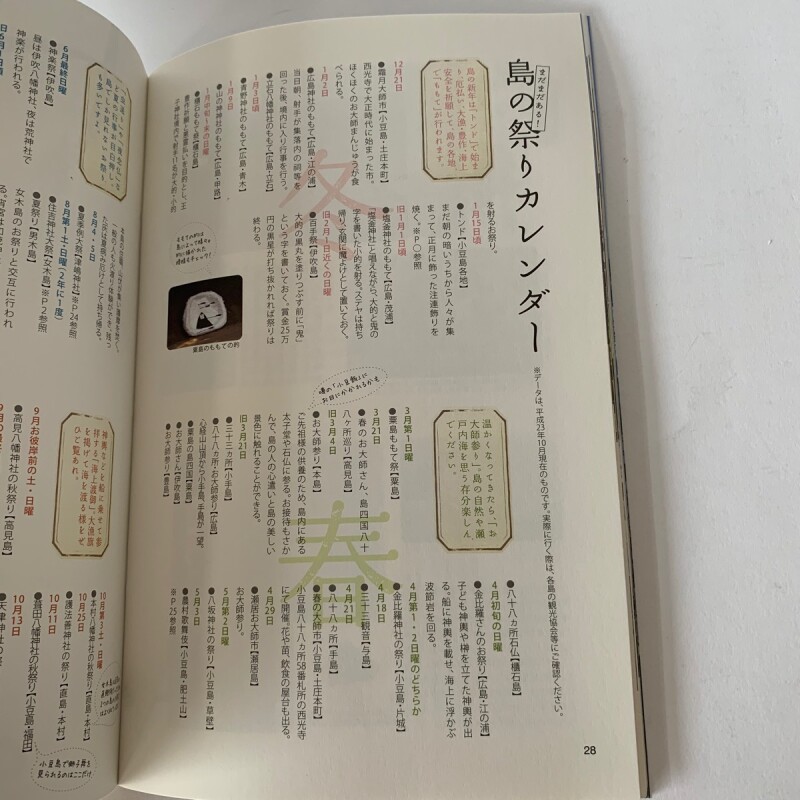 まだまだある！
島の祭りカレンダー
※データは、平成23年10月現在のものです。実際に行く際は、各島の観光協会等にご確認ください。
島の新年は「トンド」で始ま
り、厄払い、大漁・豊作、海上
安全を祈願して、島の各地
で「ももて」が行われます。
冬
12月21日
●霜月大師市【小豆島・土庄本町】
西光寺で大正時代に始まった市。
ほくほくのお大師まんじゅうが食
べられる。
1月2日
●広島神社のももて【広島・江の浦】
当日朝、射手が集落内の祠等を
回った後、境内に入り行事を行う。
●立石八幡神社のももて【広島・立石】
1月3日頃
●青野神社のももて【広島・青木】
1月9日
●山の神神社のももて【広島・甲路】
1月初旬～末の日曜
●櫃石ももて祭【櫃石島】
を射るお祭り。
1月15日頃
●トンド【小豆島各地】
まだ朝の暗いうちから人々が集
まって、正月に飾った注連飾りを
焼く。※P〇参照
旧1月1日頃
●塩釜神社のももて【広島・茂浦】
「塩釜神社」と唱えながら、大的と鬼の
字を書いた小的を射る。ステヤは持ち
帰り、玄関に魔よけとして置いておく。
旧2月1日近くの日曜
●百手祭【伊吹島】
大的の黒丸を塗りつぶす前に「鬼」
という字を書いておく。賞金25万
円の黒星が打ち抜かれれば祭りは
終わる。
粟島のももての的
温かくなってきたら、「お
大師参り」。島の自然や瀬
戸内海を思う存分楽しん
でください。
春
3月第1日曜
●粟島ももて祭【粟島】
3月21日
●春のお大師さん、島四国八十
八ヶ所巡り【高見島】
旧3月4日
●お大師参り【本島】
ご先祖様の供養のため、島内にある
太子堂や石仏に参る。お接待もさか
んで、島の人の心遣いと島の美しい
景色に触れることができる。
旧3月21日
●三十三ヵ所【小手島】
●八十八ヵ所お大師参り【広島】
心経山山頂から小手島、手島が一望。
●粟島の島四国【粟島】
●お大師さん【伊吹島】
●お大師参り【豊島】
●八十八ヵ所石仏【櫃石島】
4月初旬の日曜
●金比羅さんのお祭り【広島・江の浦】
子ども神輿や榊を立てた神輿が出
る。船に神輿を載せ、海上に浮かぶ
波節岩を回る。
4月第1・2日曜のどちらか
●金比羅神社の祭り【小豆島・片城】
4月18日
●三十三観音【与島】
4月21日
●八十八ヵ所【手島】
●春の大師市【小豆島・土庄本町】
小豆島八十八ヵ所58番札所の西光寺
にて開催。花や苗、飲食の屋台も出る。
4月29日
●瀬居お大師市【瀬居島】
お大師参り。
5月第2日曜
●八坂神社の祭り【小豆島・草壁】
5月3日
●農村歌舞伎【小豆島・肥土山】
※P25参照
28
6月最終日曜
●神楽祭【伊吹島】
昼は伊吹八幡神社、夜は荒神社で
神楽が行われる。
旧6月1日頃
8月4・5日
●夏季例大祭【津嶋神社】※P24参照
8月第1土・日曜(2年に1度)
●住吉神社大祭【女木島】※P2参照
●夏祭り【男木島】
女木島のお祭りと交互に行われ
神輿などを船に乗せて参
拝する「海上渡御」。大漁旗
を掲げて海を渡る様をぜ
ひご覧あれ。
9月お彼岸前の土・日曜
●高見八幡神社の秋祭り【高見島】
10月第3土・日曜
●本村八幡神社の秋祭り【直島・本村】
10月25日
●護法善神社の祭り【直島・本村】
10月11日
10月13日
小豆島で獅子舞を
見られるのはここだけ